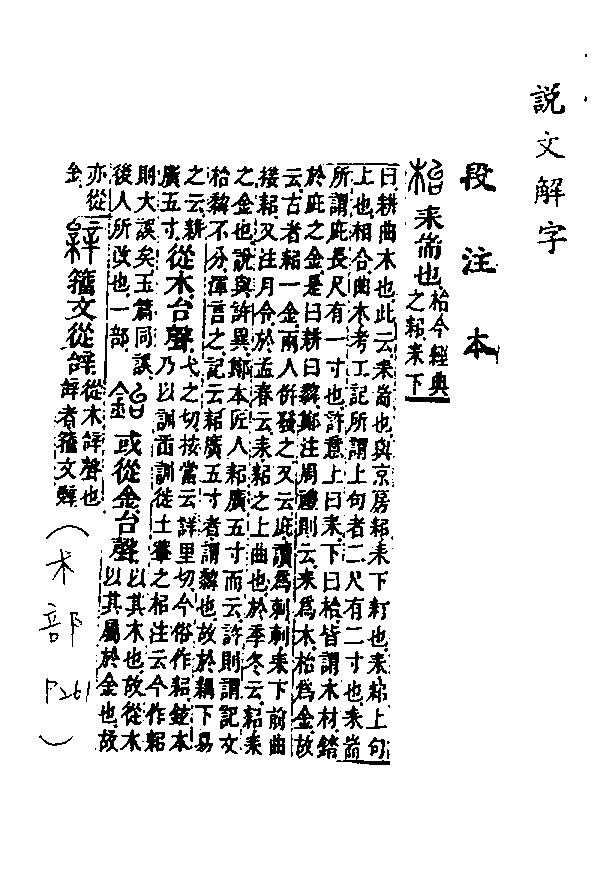 說文解字
段注本
枱耒耑也枱今經典
之耜耒下
曰耕曲木也此云耒耑也與京房耜耒下耓也耒耜上句
上也相合曲木考工記所謂上句者二尺有二寸也耒耑
所謂庛長尺有一寸也許意上曰耒下曰枱皆謂木材鍇
於庛之金是曰耕曰鄭注周禮則云耒爲木枱爲金故
云古者耜一金兩人併發之又云庛讀爲刺刺耒下前曲
接耜又注月令於孟春云耒耜之上曲也於季冬云耜耒
之金也說與許異鄭本匠人耜廣五寸而云許則謂記文
枱不分渾言之記云耜廣五寸者謂也故於耦下易
之云耕
廣五寸
從木台聲
弋之切按當云詳里切今俗作耜鉉本
乃以訓臿訓徙土輂之梩注云今作耜
則大誤矣玉篇同誤
後人所改也一部
鈶或從金台聲
以其木也故從木
以其屬於金也故
亦從
金
籀文從辝
從木辝聲也
辝者籀文辭
(木部 P261)